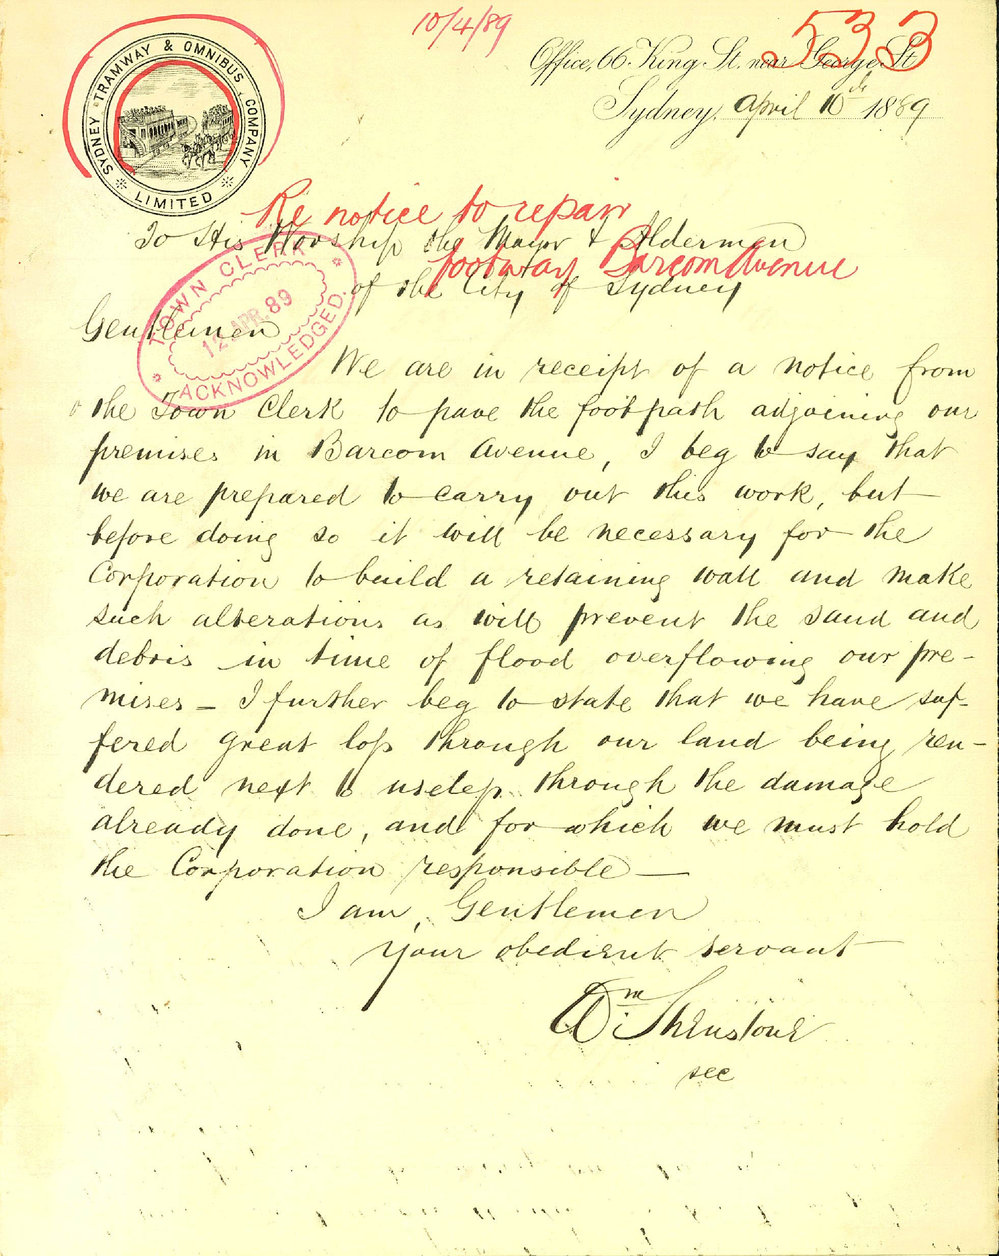 10/4/89
533
SYDNEY TRAMWAY & OMNIBUS COMPANY
LIMITED
Office, 66 King St. near George St
Sydney, April 10th 1889
Re notice to repair
footway Barcom Avenue
To His Worship the Mayor & Alderman
of the City of Sydney
TOWN CLERK
12 APR. 89
ACKNOWLEDGED.
Gentlemen
We are in receipt of a notice from
the Town Clerk to pave the footpath adjoining our
premises in Barcom Avenue, I beg to say that
we are prepared to carry out this work, but
before doing so it will be necessary for the
Corporation to build a retaining wall and make
such alterations as will prevent the sand and
debris in time of flood overflowing our pre-
mises - I further beg to state that we have suf-
fered great loss through our land being ren-
dered next to useless through the damage
already done, and for which we must hold
the Corporation responsible —
I am, Gentlemen
Your obedient servant
Wm Shenstone
sec